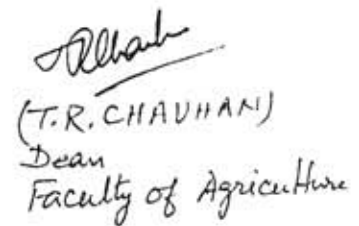 (T.R. CHAUHAN)
Dean
Faculty of Agriculture